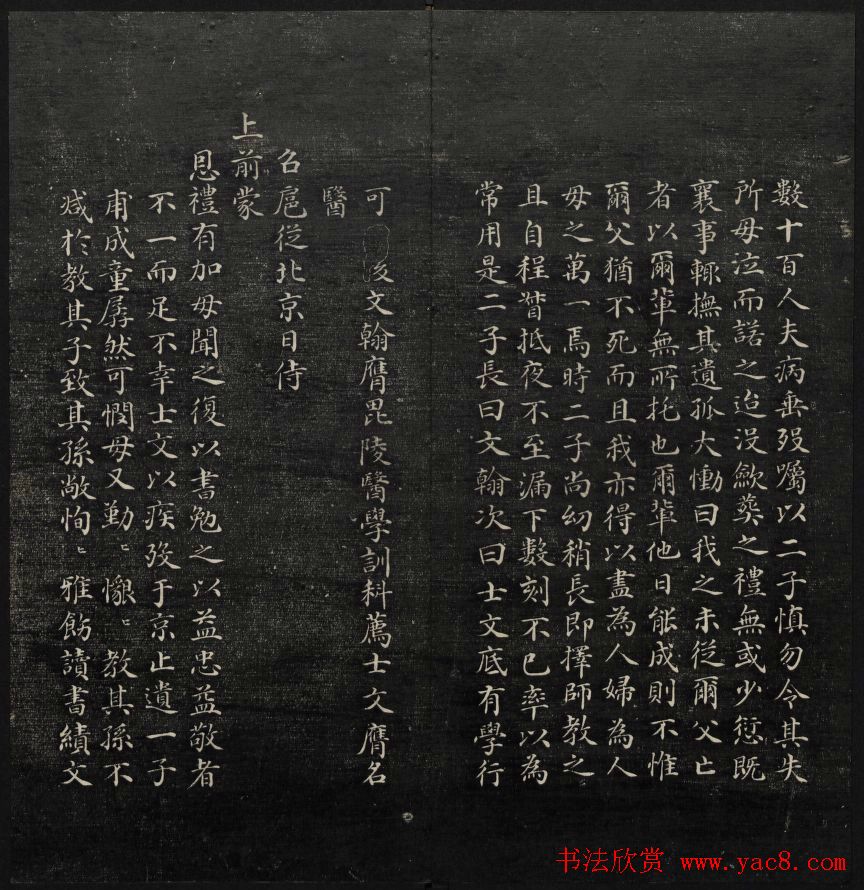 數十百人夫病垂歿囑以二子慎勿令其失
所毋泣而諾之迨没歛葬之禮無或少愆既
襄事輙撫其遺孤大慟曰我之未從爾父亡
者以爾輩無所托也爾輩他日能成則不惟
爾父猶不死而且我亦得以盡為人婦為人
毋之萬一焉時二子尚幼稍長即擇師教之
且自程督抵夜不至漏下數刻不已率以為
常用是二子長曰文翰次曰士文底有學行
可 後文翰膺毘陵醫學訓科薦士文膺名
醫
召扈從北京日侍
上前蒙
恩禮有加毋聞之復以書勉之以益忠益敬者
不一而足不幸士文以疾歿于京止遺一子
甫成童孱然可憫毋又勤〻懇〻教其孫不
减於教其子致其孫敞恂〻雅飭讀書績文
书法欣赏 www.yac8.com